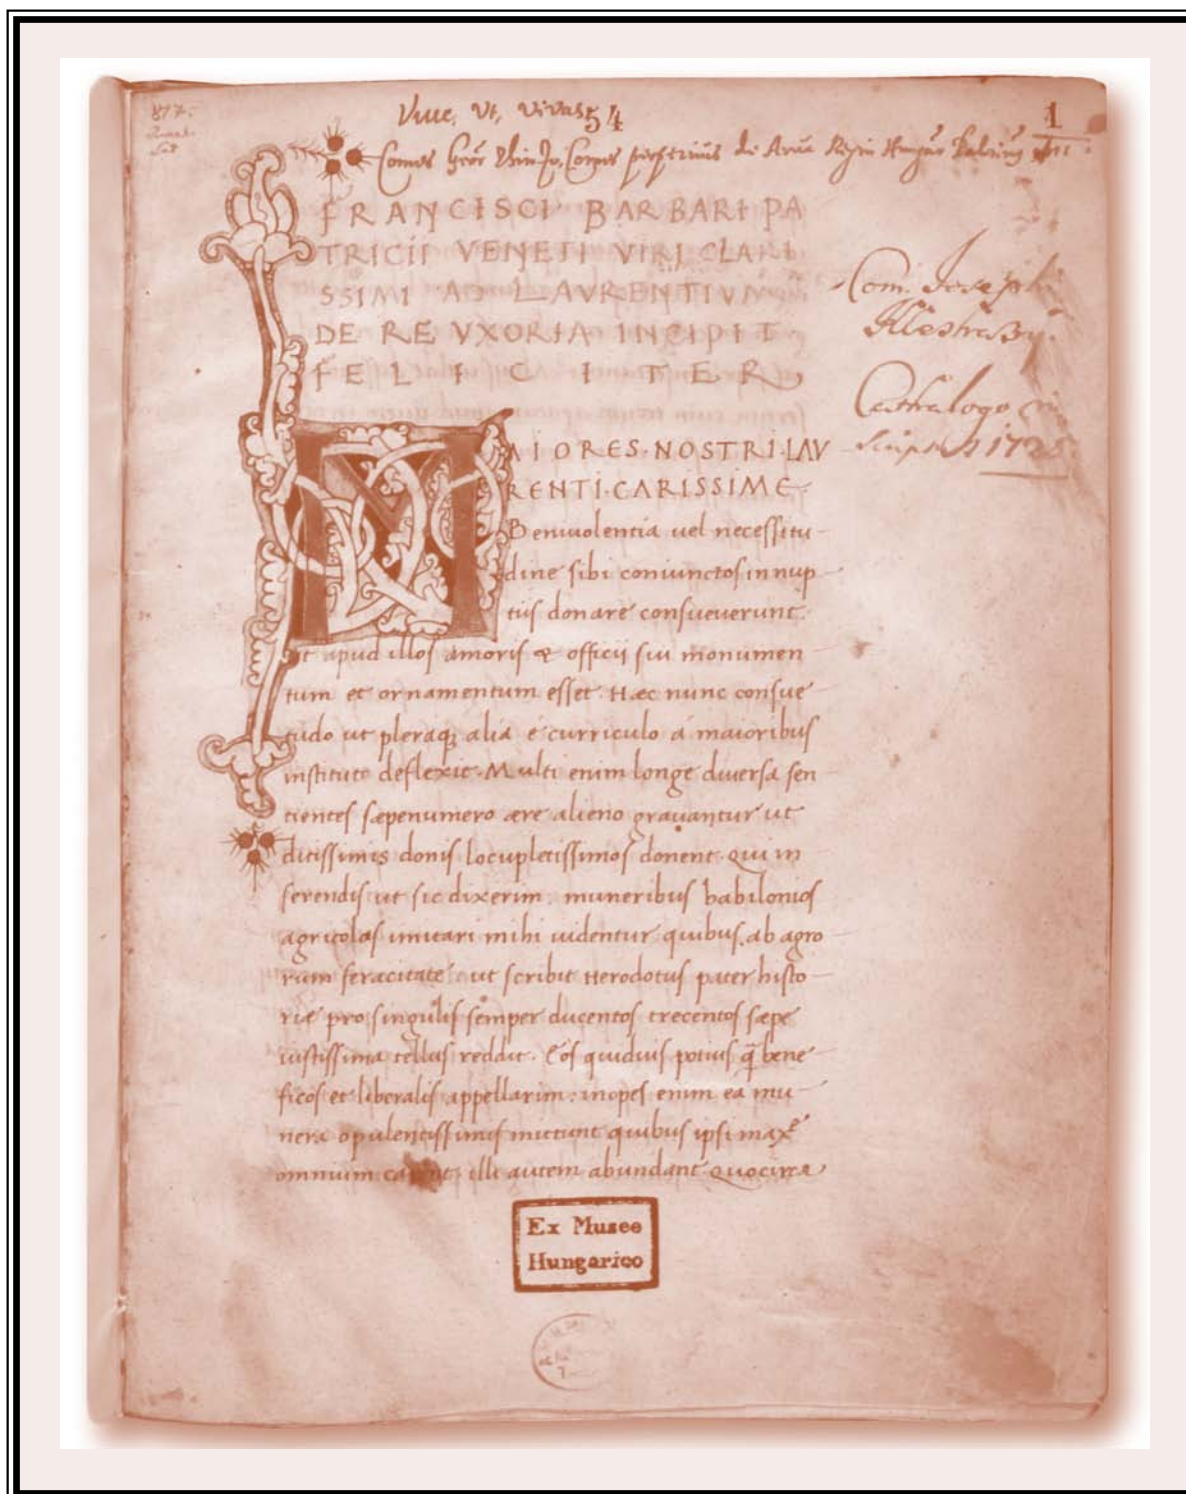 817.
Viue, Vt, Vivas 54
1
Comes
FRANCISCI BARBARI PA
TRICII VENETI VIRI CLARI
SSIMI AD LAVRENTIVM
DE RE VXORIA INCIPIT
FELICITER
Com. Josephi
Illesházy
1725
MAIORES·NOSTRI·LAV
RENTI·CARISSIME·
Beniuolentia uel necessitu-
dine sibi coniunctos in nup-
tiis donare consueuerunt.
ut apud illos amoris & officii sui monumen
tum et ornamentum esset. Hæc nunc consue-
tudo ut pleraq; alia é curriculo á maioribus
instituto deflexit. Multi enim longe diuersa sen
tientes sæpenumero ære alieno grauantur ut
ditissimis donis locupletissimos donent. Qui in
ferendis ut sic dixerim muneribus babilonios
agricolas imitari mihi uidentur quibus ab agro
rum feracitate ut scribit Herodotus pater histo-
riæ pro singulis semper ducentos trecentos sæpe
iustissima tellus reddit. Eos quiduis potius q̃ bene-
ficos et liberalis appellarim: inopes enim ea mu-
nera opulentissimis mittunt quibus ipsi maxe
omnium carent, illi autem abundant. Quocirca
Ex Museo
Hungarico